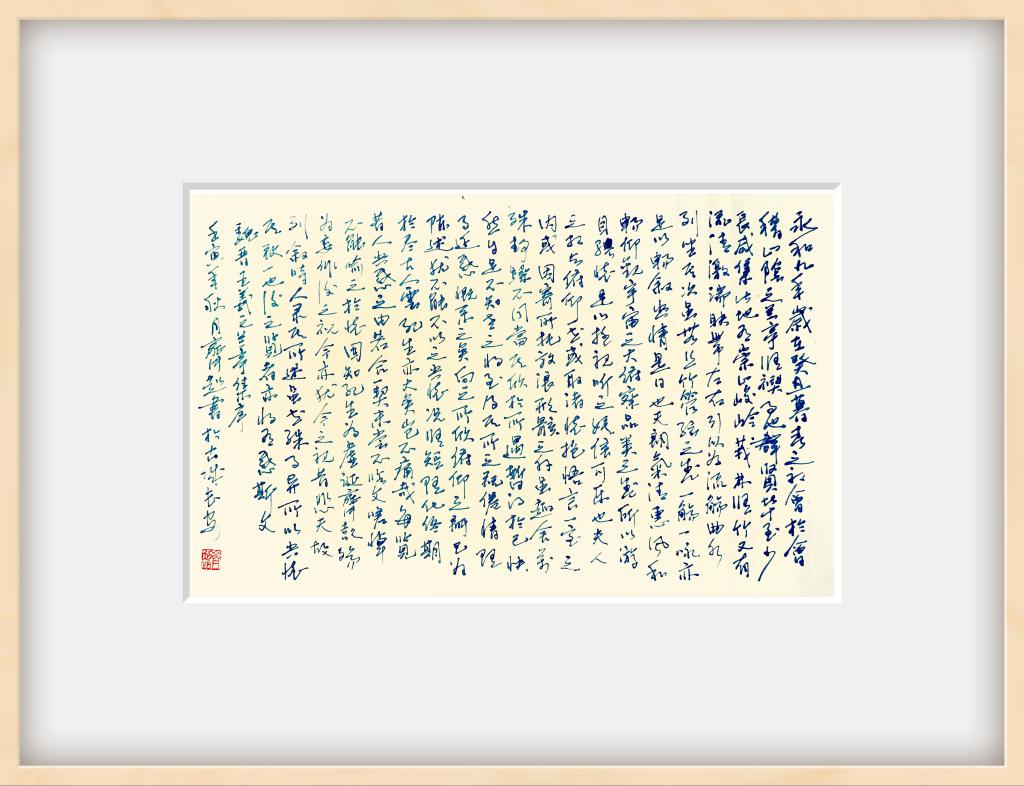 永和九年歲在癸丑暮春之初會於會
稽山陰之兰亭脩禊事也群賢畢至少
長咸集此地有崇山峻岭茂林脩竹又有
流清激湍映帶左右引以為流觴曲水
列坐其次雖無絲竹管弦之盛一觴一詠亦
足以暢敘幽情是日也天朗氣清惠風和
暢仰觀宇宙之大俯察品類之盛所以游
目騁懷足以極視聽之娛信可樂也夫人
之相與俯仰一世或取諸懷抱悟言一室之
內或因寄所托放浪形骸之外雖趣舍萬
殊靜躁不同當其欣於所遇暫得於己快
然自足不知老之將至及其所之既倦情隨
事遷感慨系之矣向之所欣俯仰之間已為
陳迹猶不能不以之興懷況脩短隨化終期
於盡古人雲死生亦大矣豈不痛哉每覽
昔人興感之由若合一契未嘗不臨文嗟悼
不能喻之於懷固知死生為虛誕齊彭殤
為妄作後之視今亦猶今之視昔悲夫故
列敘時人錄其所述雖世殊事異所以興懷
其致一也後之覽者亦將有感斯文
魏晉王羲之兰亭集序
壬寅年秋月齊超書於古城長安